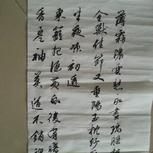 薄霧濃雲愁永晝瑞腦銷
金獸佳節又重陽玉枕紗廚
半夜涼初透
東籬把酒黃昏後有暗
香盈袖莫道不銷魂